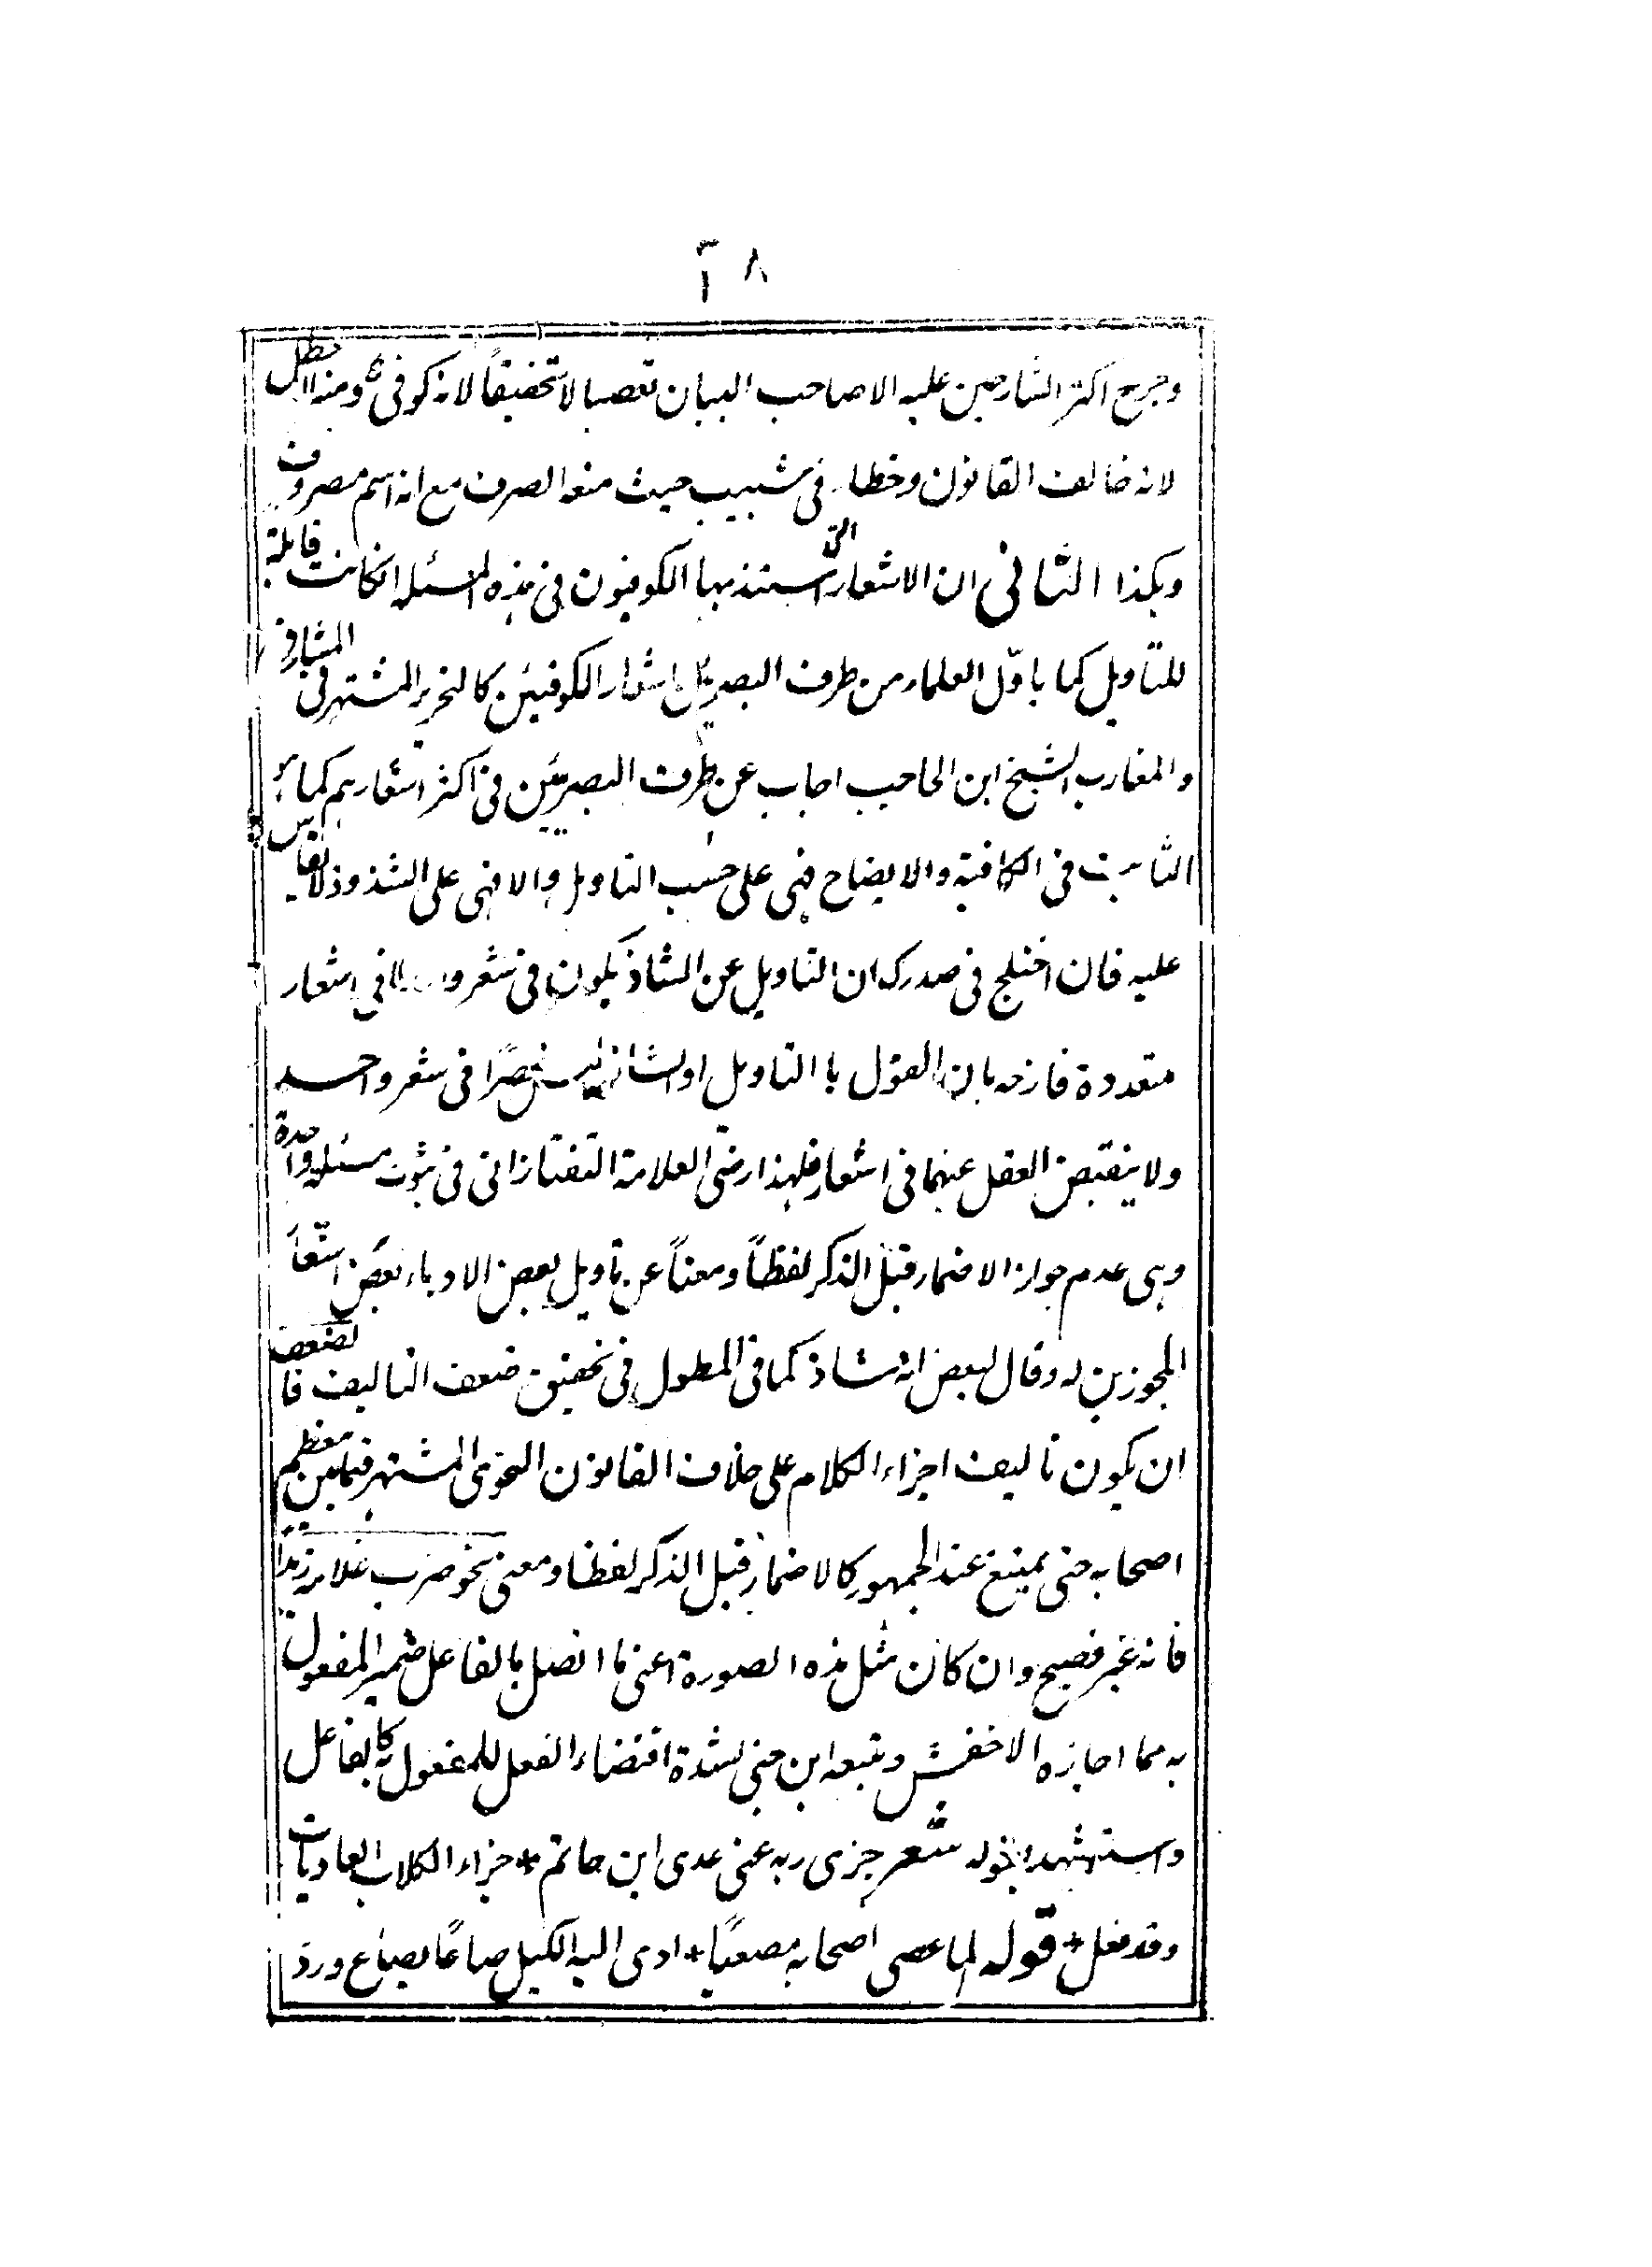 ٨ آ
وجرح اكثر الشارحين عليه الا صاحب البيان تعصبا لا تحقيقاً لانه كوفى ومنه الاخطل
لانه خالف القانون وخطاء فى شبيب حيث منعه الصرف مع انه اسم مصروف
وهكذا الثانى ان الاشعار التى استند بها الكوفيون فى هذه المسئلة انكانت قابلة
للتاويل كما ياوّل العلماء من طرف البصريين اشعار الكوفيين كالنحرير المشتهر فى المشارق
والمغارب الشيخ ابن الحاجب اجاب عن طرف البصريين فى اكثر اشعارهم كما هو
الثابت فى الكافية والايضاح فهى على حسب التاويل والا فهى على الشذوذ لا يقاس
عليه فان اختلج فى صدرك ان التاويل عن الشاذ يكون فى شعر واحد لا فى اشعار
متعددة فازحه بان القول با التاويل او الشاذ ليس منحصرًا فى شعر واحد
ولا ينقبض العقل عنهما فى اشعار فلهذا رضى العلامة التفتازانى فى ثبوت مسئلة واحدة
وهى عدم جواز الاضمار قبل الذكر لفظاً ومعناً عن تاويل بعض الادباء بعض اشعار
المجوزين له وقال لبعض انه شاذ كما فى المطول فى تحقيق ضعف التاليف فالضعف
ان يكون تاليف اجزاء الكلام على خلاف القانون النحوى المشتهر فيما بين معظم
اصحابه حتى يمتنع عند الجمهور كالاضمار قبل الذكر لفظا ومعنى نحو ضرب غلامه زيدًا
فانه غير فصيح وان كان مثل هذه الصورة اعنى ما اتصل بالفاعل ضمير المفعول
به مما اجازه الاخفش وتبعه ابن جنى لشدة اقتضاء الفعل للمفعول به كالفاعل
واستشهد بقوله شعر جزى ربه عنى عدى ابن حاتم * جزاء الكلاب العاويات
وقد فعل * قوله لما عصى اصحابه مصعبًا * ادى اليه الكيل صاعًا بصاع ورد